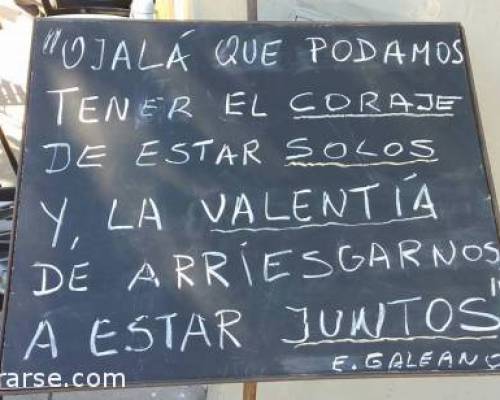 "OJALÁ QUE PODAMOS
TENER EL CORAJE
DE ESTAR SOLOS
Y, LA VALENTÍA
DE ARRÍESGARNOS
A ESTAR JUNTOS"
E. GALEANO
rarse.com